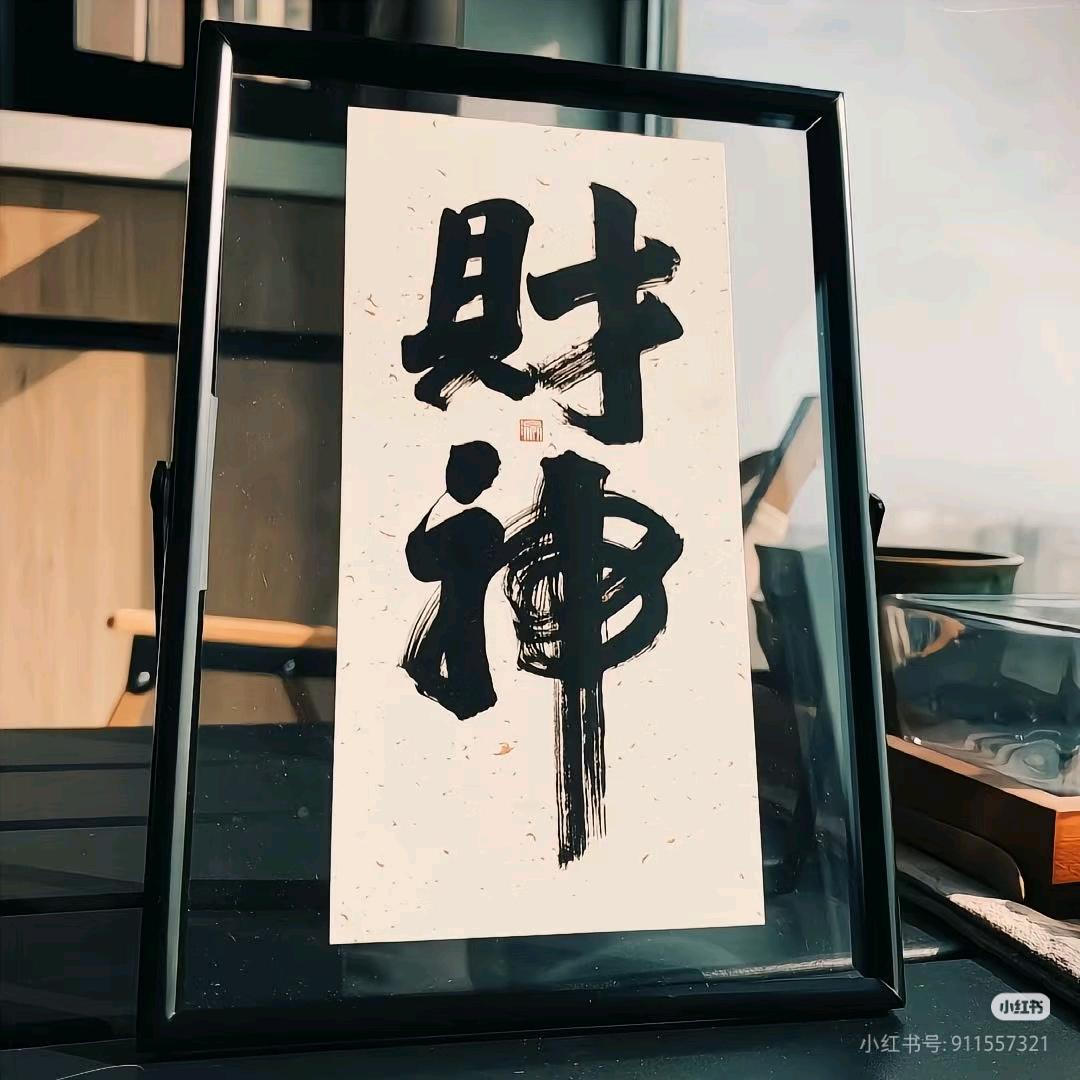 財神
小红书
小红书号: 911557321